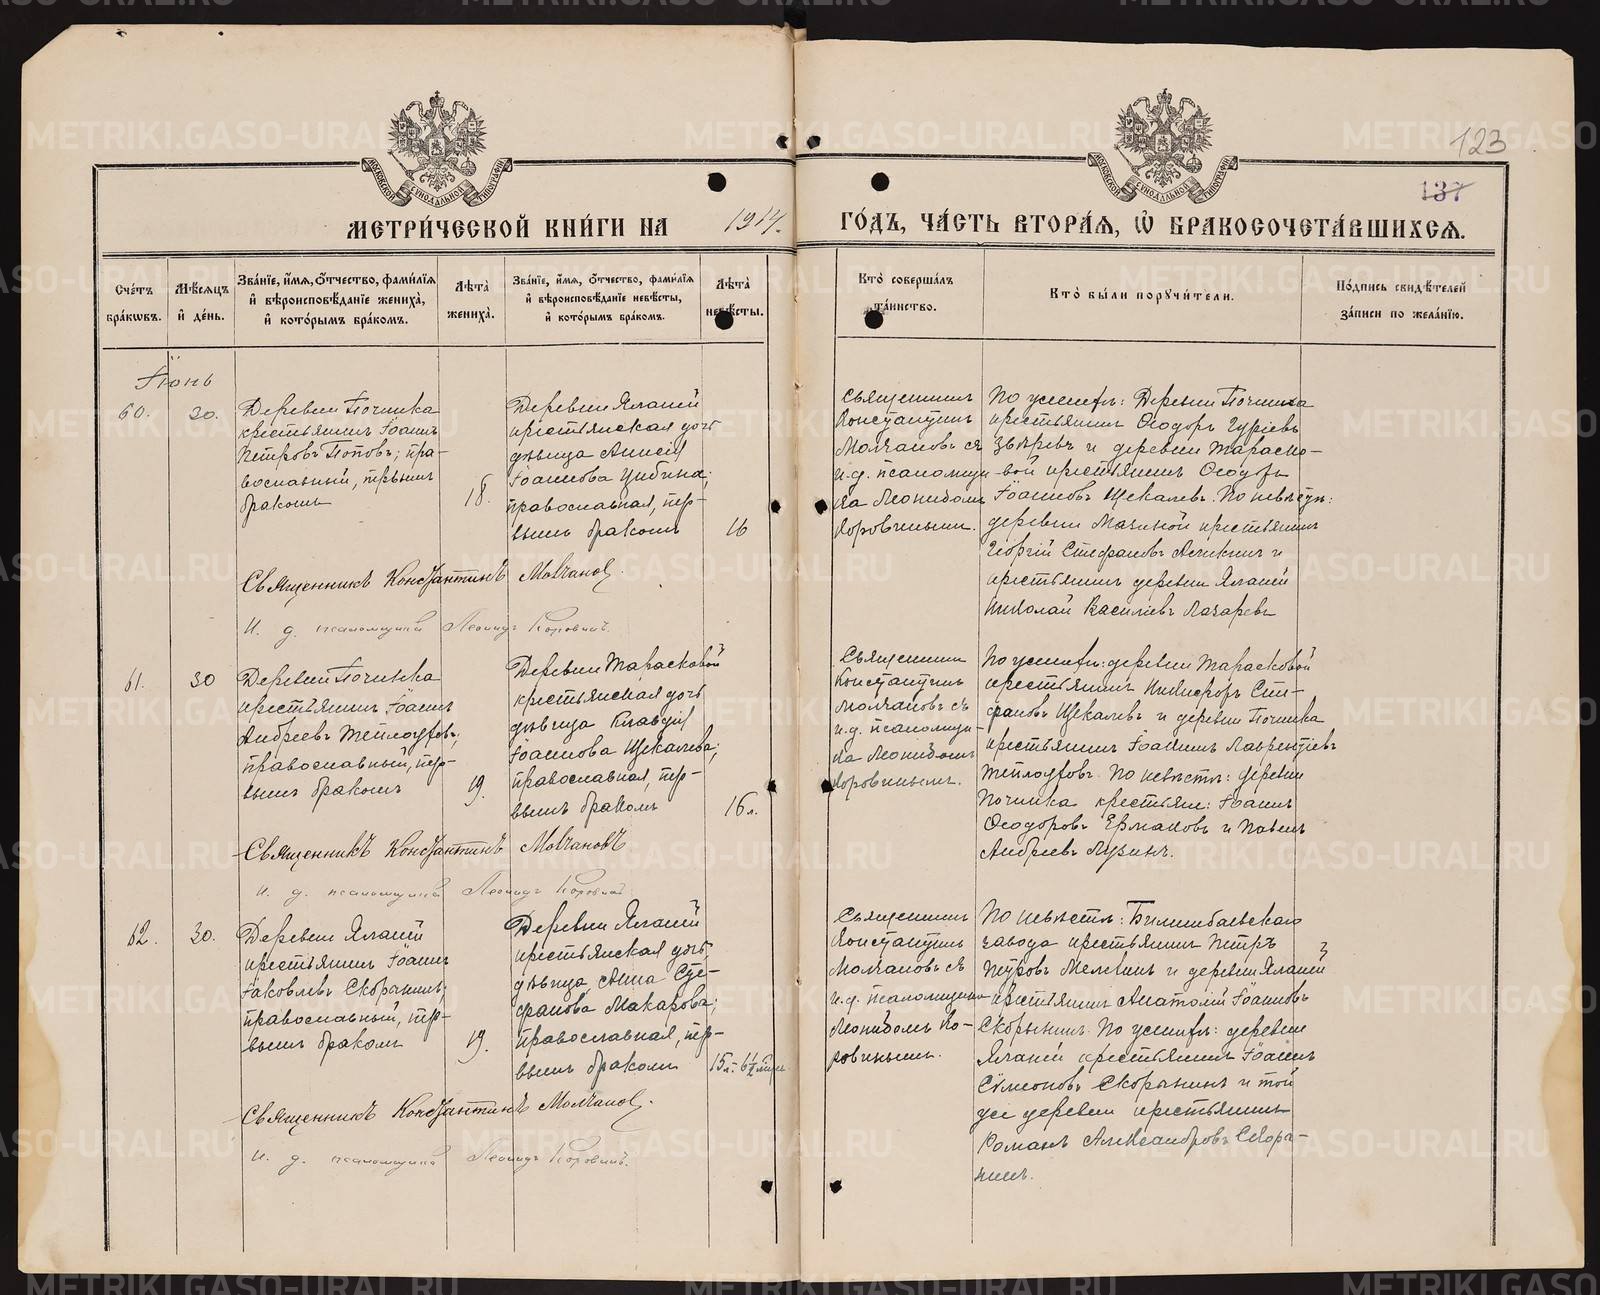 123
137
МЕТРИ́ЧЕСКОЙ КНИ́ГИ НА 1914. ГО́ДЪ, ЧА́СТЬ ВТОРА́Я, Ѽ БРАКОСОЧЕТА́ВШИХСЯ.
Сче́тъ бра́кѡвъ.
Мѣ́сяцъ и҆ де́нь.
Зва́нїе, и҆́мя, ѻ҆́тчество, фами́лїя и҆ вѣроисповѣ́данїе жениха̀, и҆ кото́рымъ бра́комъ.
Лѣ́та жениха̀.
Зва́нїе, и҆́мя, ѻ҆́тчество, фами́лїя и҆ вѣроисповѣ́данїе невѣ́сты, и҆ кото́рымъ бра́комъ.
Лѣ́та невѣ́сты.
Кто̀ соверша́лъ та́инство.
Кто̀ бы́ли пору́чи́тели.
По́дпись свидѣ́телей за́писи по жела́нїю.
Іюнь
60.
30.
Деревни Починка
крестьянинъ Іоаннъ
Петровъ Поповъ; пра-
вославный, первымъ
бракомъ
18.
Деревни Яланей
крестьянская дочь
дѣвица Анисія
Іоаннова Цибина;
православная, пер-
вымъ бракомъ
16
Священникъ
Константинъ
Молчановъ съ
и.д. псаломщи-
ка Леонидомъ
Коровинымъ.
По женихѣ: Деревни Починка
крестьянинъ Ѳеодоръ Гуріевъ
Звѣревъ и деревни Тараско-
вой крестьянинъ Ѳеодоръ
Іоанновъ Щекалевъ. По невѣстѣ:
деревни Мазиной крестьянинъ
Георгій Стефановъ и
крестьянинъ деревни Яланей
Николай Василіевъ Лазаревъ
Священникъ Константинъ Молчановъ.
И. д. псаломщика Леонидъ Коровинъ.
61.
30
Деревни Починка
крестьянинъ Іоаннъ
Андреевъ Теплоуховъ;
православный, пер-
вымъ бракомъ
19.
Деревни Тарасковой
крестьянская дочь
дѣвица Клавдія
Іоаннова Щекалева;
православная, пер-
вымъ бракомъ
16 л.
Священникъ
Константинъ
Молчановъ съ
и.д. псаломщи-
ка Леонидомъ
Коровинымъ.
По женихѣ: деревни Тарасковой
крестьянинъ Никифоръ Сте-
фановъ Щекалевъ и деревни Починка
крестьянинъ Іоаннъ Лаврентіевъ
Теплоуховъ. По невѣстѣ: деревни
Починка крестьяне: Іоаннъ
Ѳеодоровъ Ермаковъ и Павелъ
Андреевъ Лузинъ.
Священникъ Константинъ Молчановъ
и. д. псаломщика Леонидъ Коровинъ
62.
30.
Деревни Яланей
крестьянинъ Іоаннъ
Іаковлевъ Скорынинъ;
православный, пер-
вымъ бракомъ
19.
Деревни Яланей
крестьянская дочь,
дѣвица Анна Сте-
фанова Макарова;
православная, пер-
вымъ бракомъ
15 л. 6½ мѣс.
Священникъ
Константинъ
Молчановъ съ
и.д. псаломщика
Леонидомъ Ко-
ровинымъ.
По невѣстѣ: Билимбаевскаго
завода крестьянинъ Петръ
Петровъ и деревни Яланей
крестьянинъ Анатолій Іоанновъ
Скорынинъ. По женихѣ: деревни
Яланей крестьянинъ Іоаннъ
Сѵмеоновъ Скорынинъ и той
же деревни крестьянинъ
Романъ Александровъ Скоры-
нинъ.
Священникъ Константинъ Молчановъ.
и. д. псаломщика Леонидъ Коровинъ.
METRIKI.GASO-URAL.RU